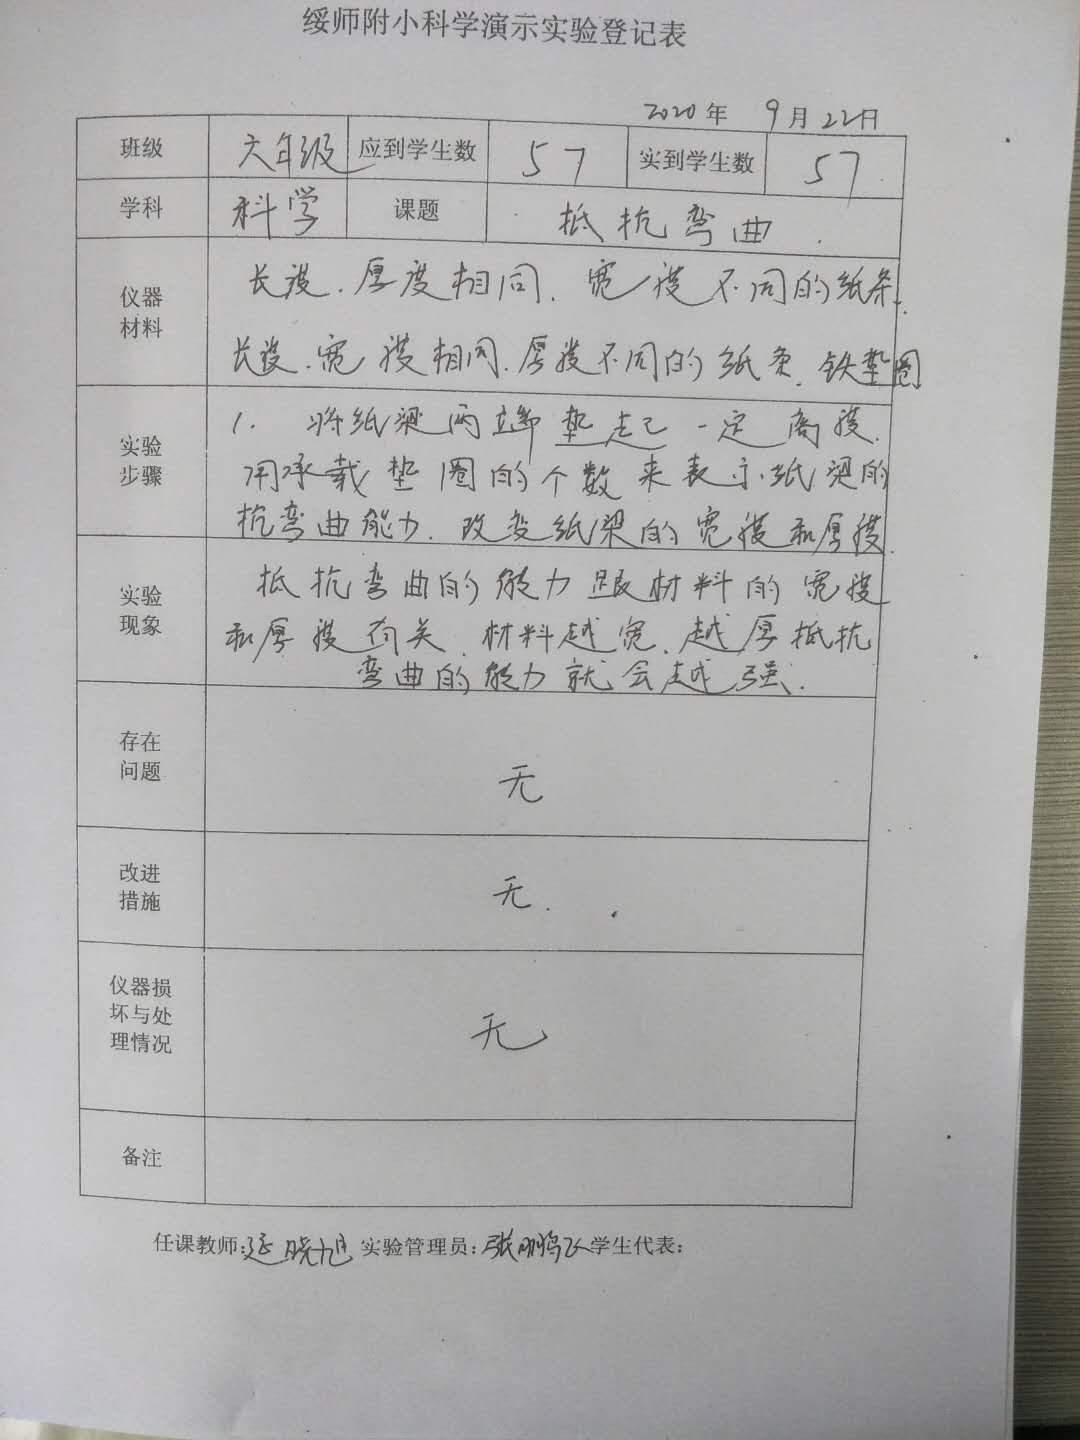 绥师附小科学演示实验登记表
2020年 9月22日
班级 六年级 应到学生数 57 实到学生数 57
学科 科学 课题 抵抗弯曲.
仪器
材料
长度、厚度相同、宽度不同的纸条、
长度、宽度相同、厚度不同的纸条、铁垫圈
实验
步骤
1. 将纸梁两端垫起一定高度.
用承载垫圈的个数来表示纸梁的
抗弯曲能力. 改变纸梁的宽度和厚度.
实验
现象
抵抗弯曲的能力跟材料的宽度
和厚度有关. 材料越宽、越厚抵抗
弯曲的能力就会越强.
存在
问题
无
改进
措施
无.
仪器损
坏与处
理情况
无
备注
任课教师:延晓旭 实验管理员:张鹏飞 学生代表: